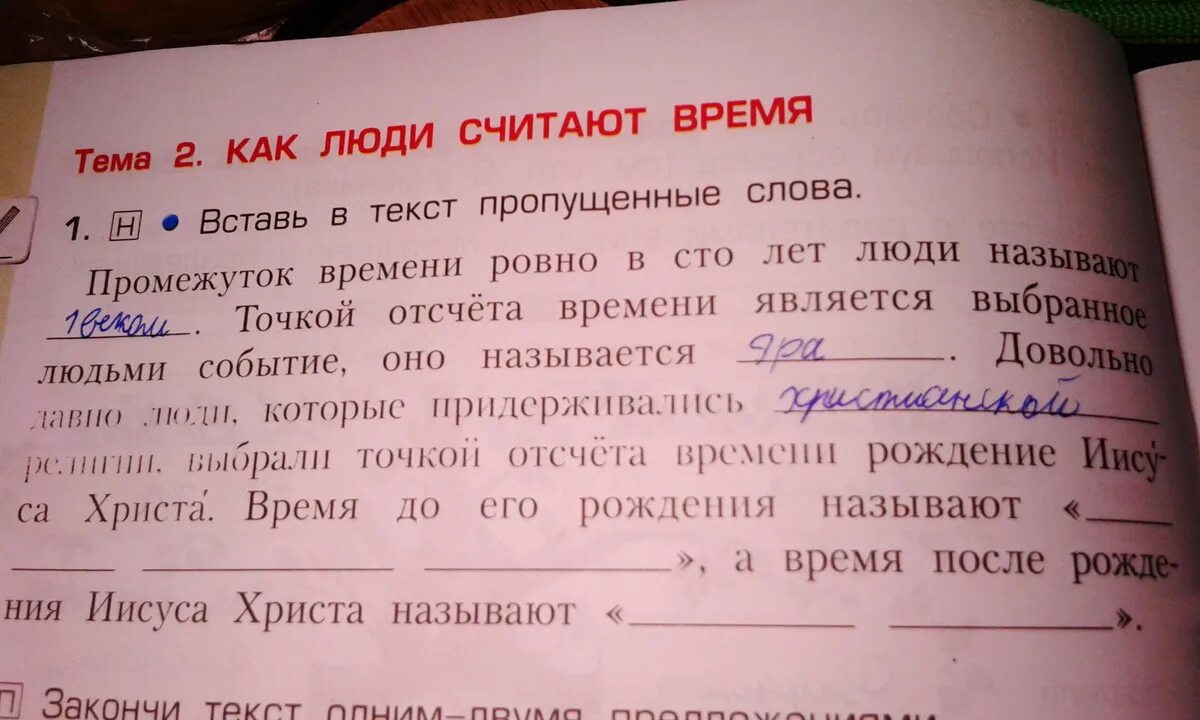 Тема 2. КАК ЛЮДИ СЧИТАЮТ ВРЕМЯ
1. Н • Вставь в текст пропущенные слова.
Промежуток времени ровно в сто лет люди называют
1веком. Точкой отсчёта времени является выбранное
людьми событие, оно называется эра. Довольно
давно люди, которые придерживались христианской
религии, выбрали точкой отсчёта времени рождение Иису́-
са Христа́. Время до его рождения называют «____
____ ____ ____», а время после рожде-
ния Иисуса Христа называют «____ ____».
П Закончи текст одним-двумя предложениями